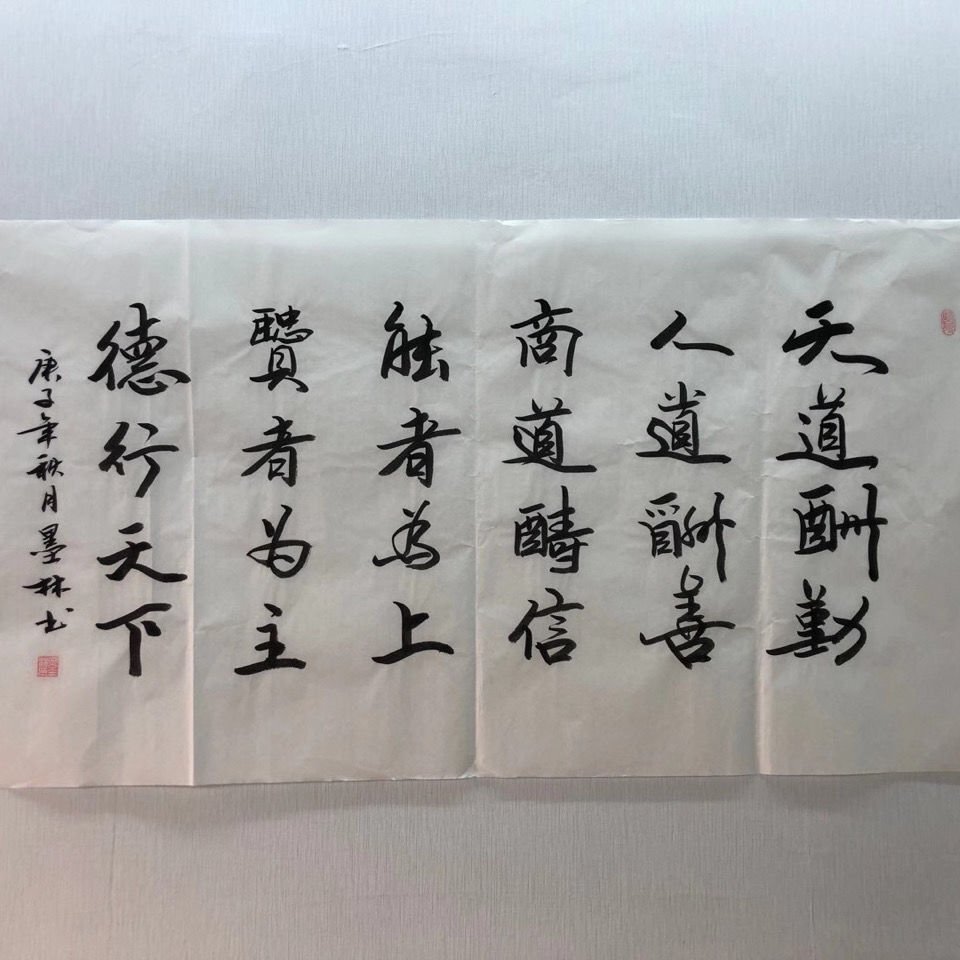 天道酬勤
人道酬善
商道醻信
能者为上
贒者为主
德行天下
庚子年秋月墨林书